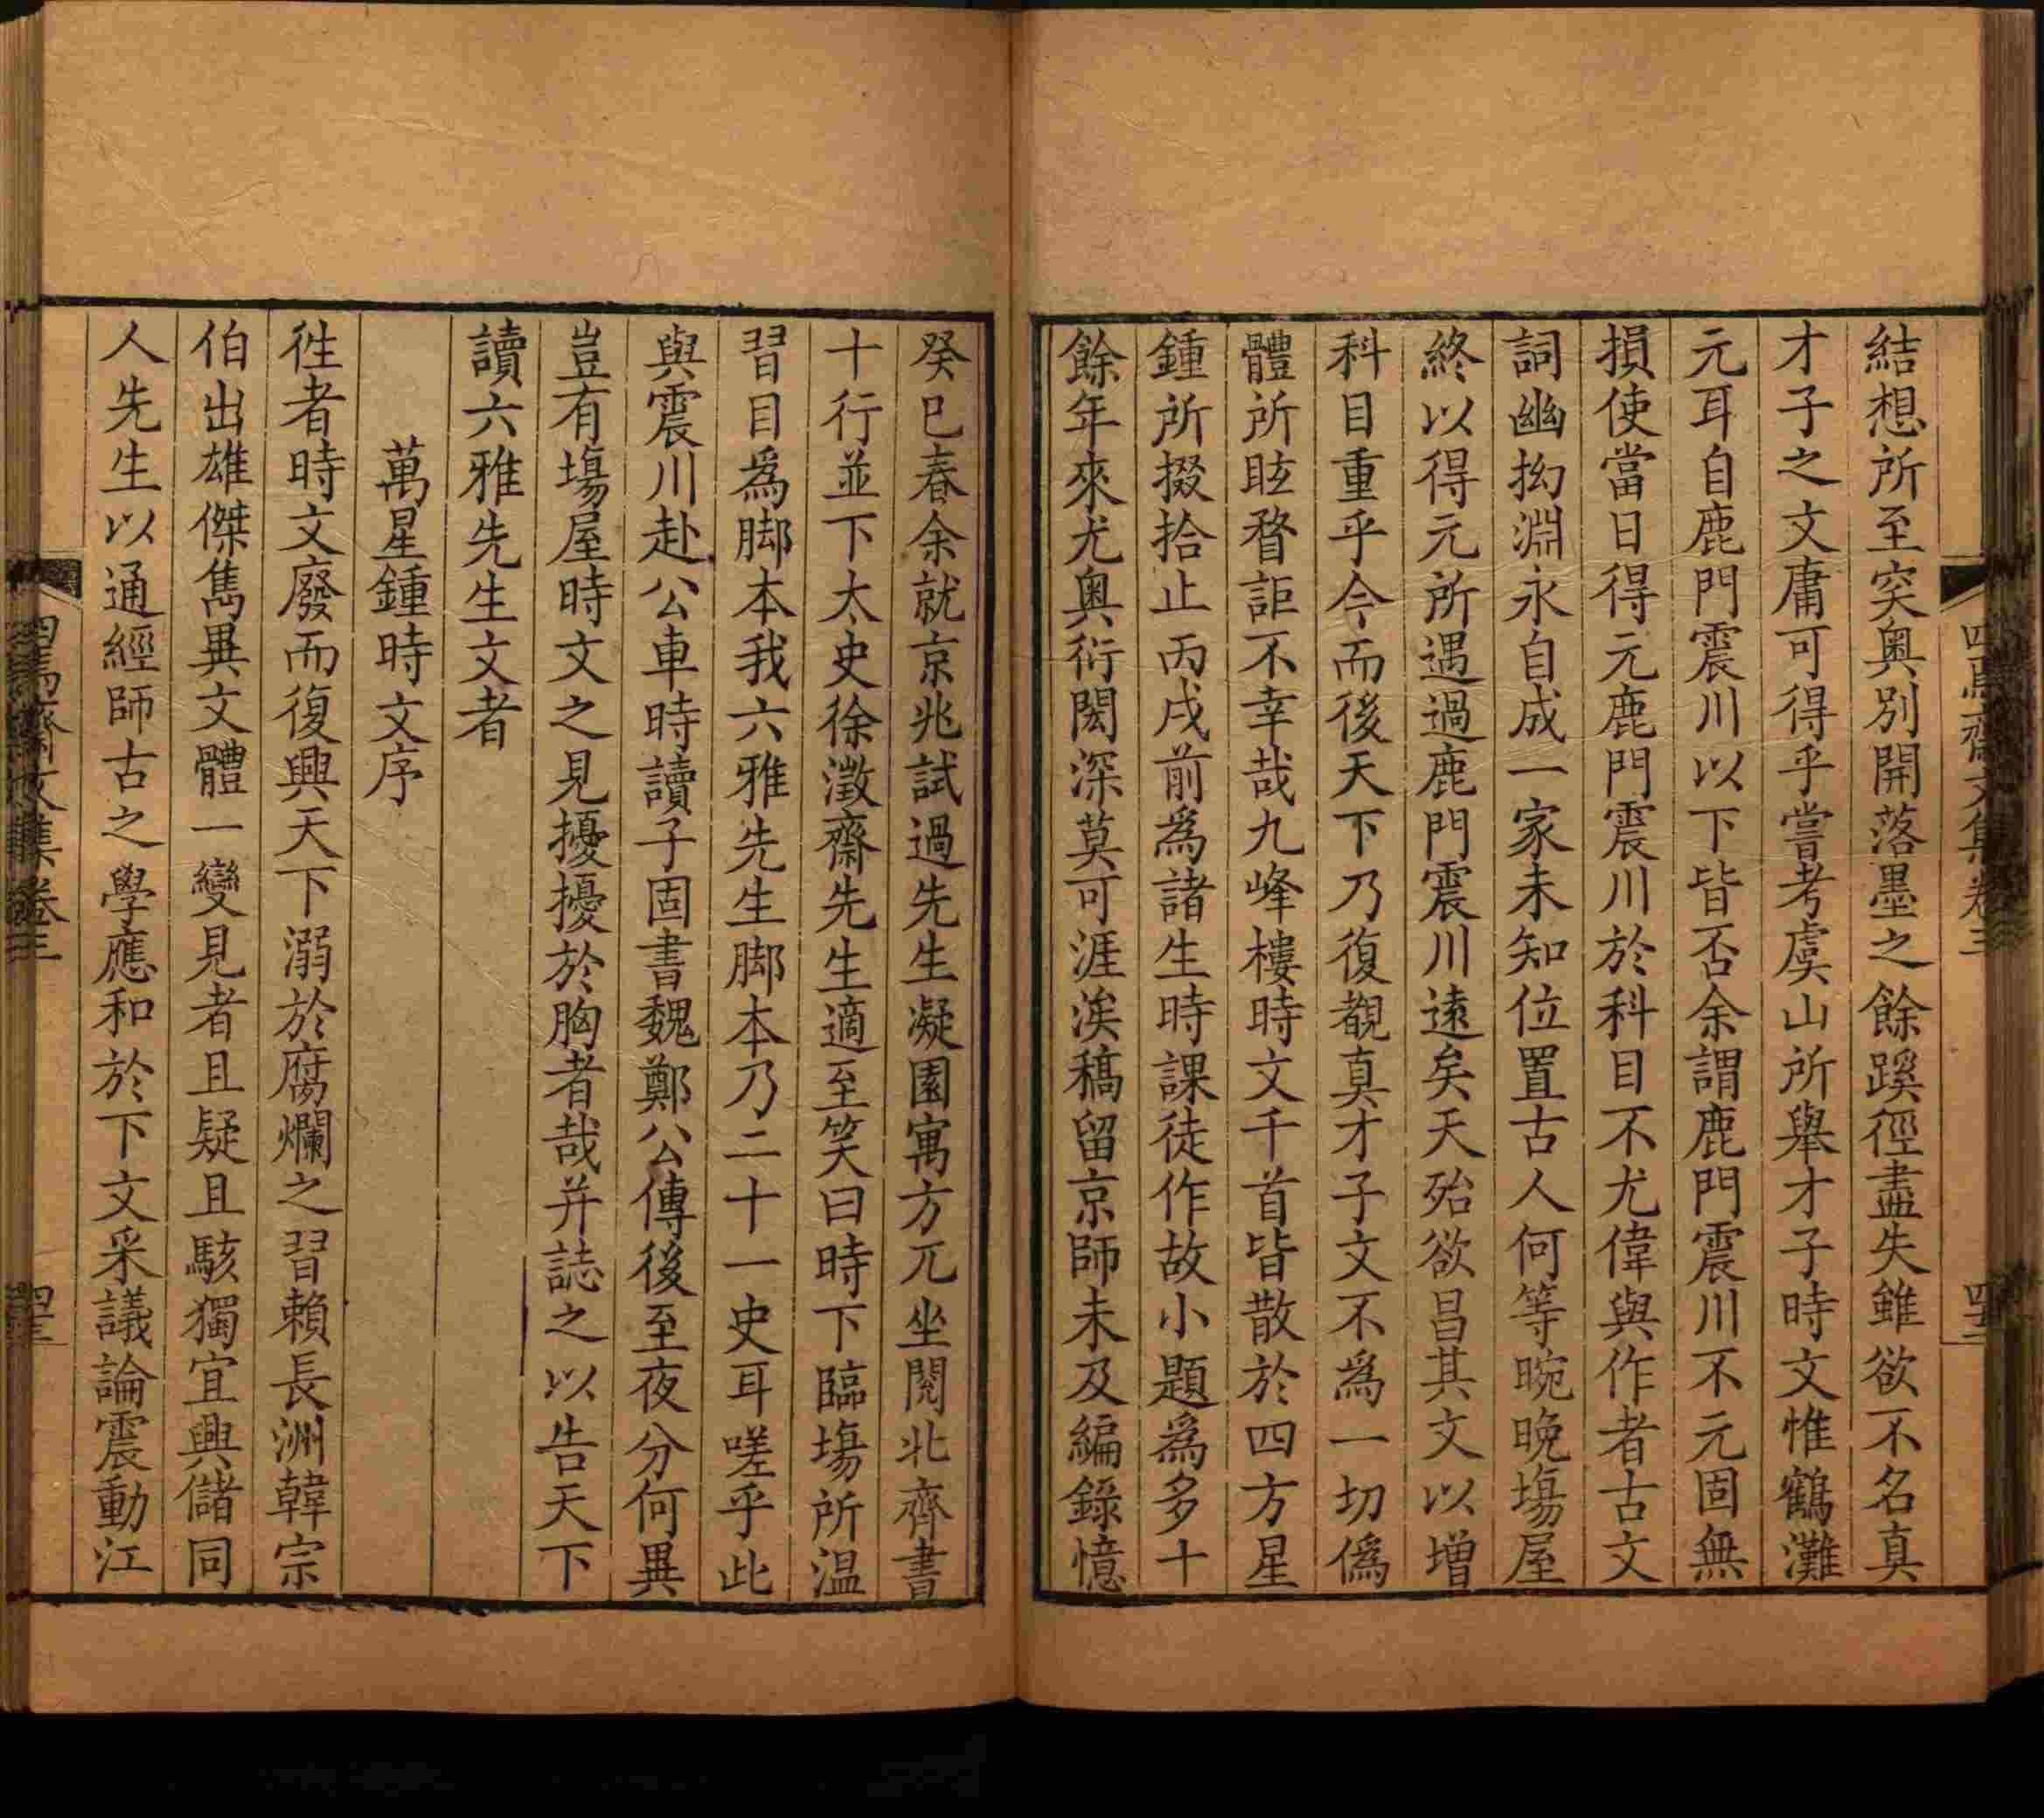 四焉齋文集卷三
四十二
結想所至突奧別開落墨之餘蹊徑盡失雖欲不名真
才子之文庸可得乎嘗考虞山所舉才子時文惟鶴灘
元耳自鹿門震川以下皆否余謂鹿門震川不元固無
損使當日得元鹿門震川於科目不尤偉與作者古文
詞幽拗淵永自成一家未知位置古人何等晼晚塲屋
終以得元所遇過鹿門震川遠矣天殆欲昌其文以增
科目重乎今而後天下乃復覩真才子文不爲一切僞
體所眩瞀詎不幸哉九峰樓時文千首皆散於四方星
鍾所掇拾止丙戌前爲諸生時課徒作故小題爲多十
餘年來尤奧衍閎深莫可涯涘稿留京師未及編錄憶
癸巳春余就京兆試過先生凝園寓方兀坐閱北齊書
十行並下太史徐澂齋先生適至笑曰時下臨塲所温
習目爲脚本我六雅先生脚本乃二十一史耳嗟乎此
與震川赴公車時讀子固書魏鄭公傳後至夜分何異
豈有塲屋時文之見擾擾於胸者哉并誌之以告天下
讀六雅先生文者
萬星鍾時文序
徃者時文廢而復興天下溺於腐爛之習賴長洲韓宗
伯出雄傑雋異文體一變見者且疑且駭獨宜興儲同
人先生以通經師古之學應和於下文采議論震動江
四焉齋文集卷三